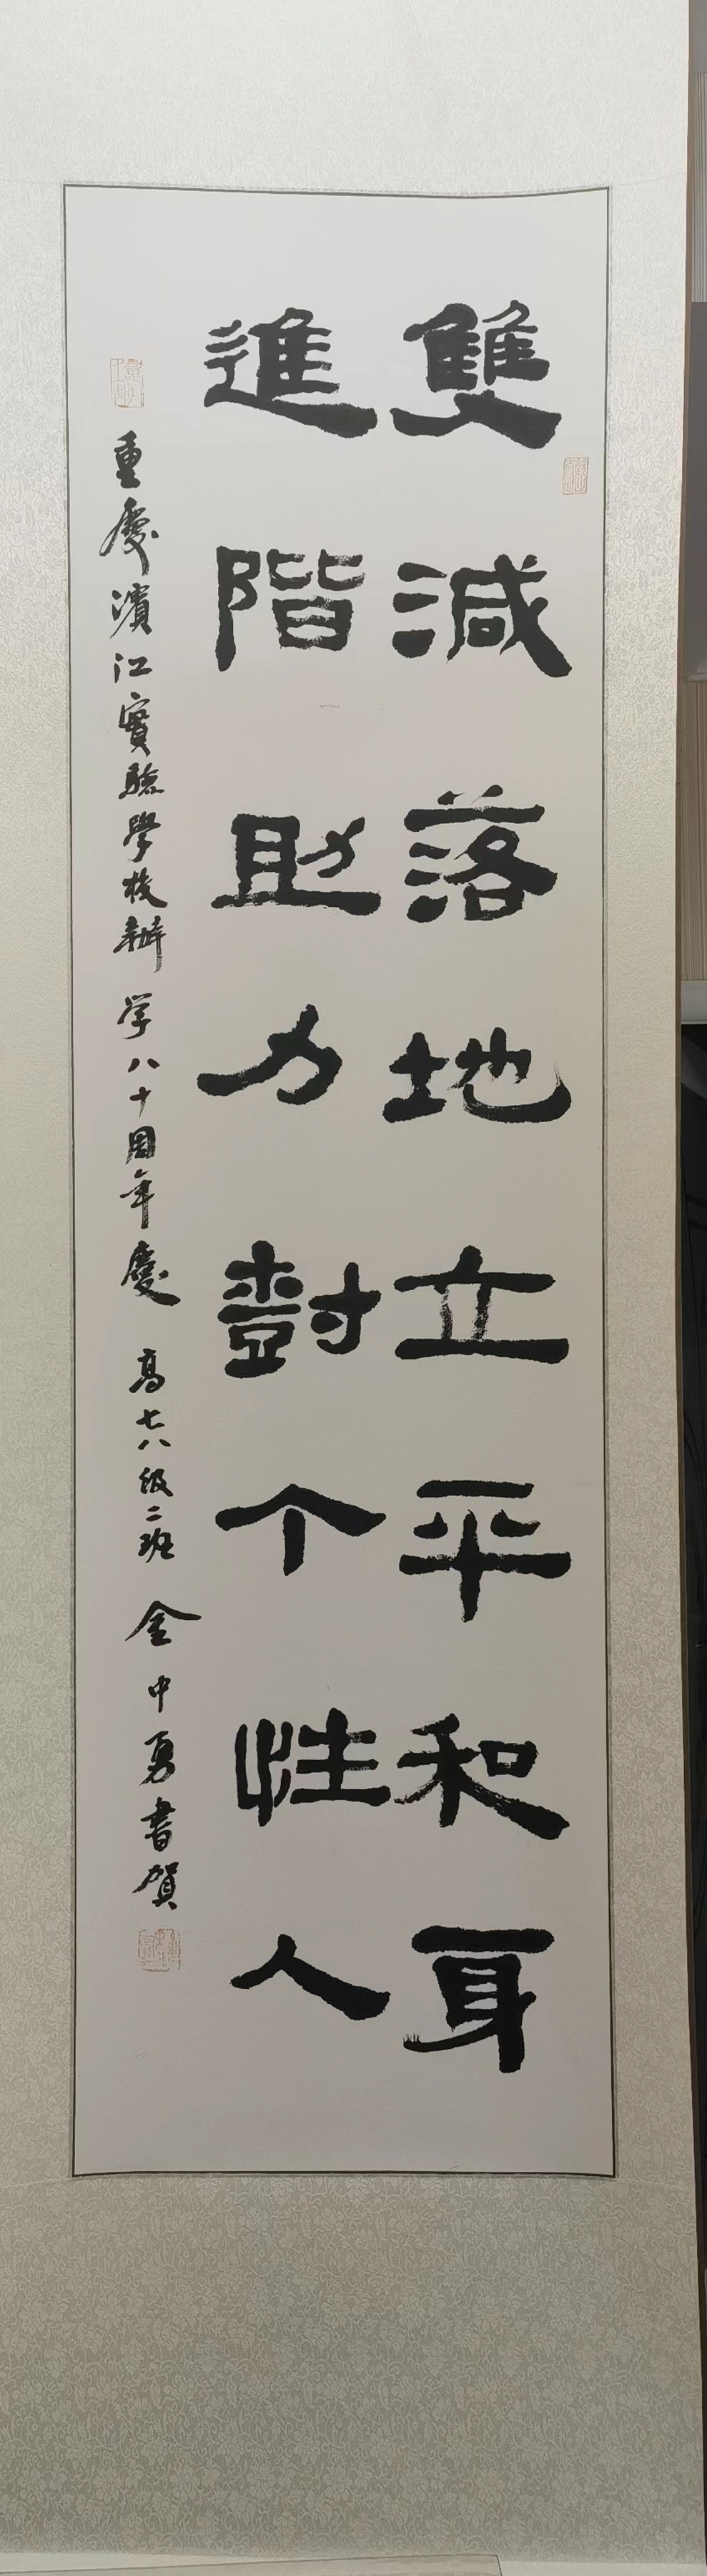 雙減落地立平和耳
進階助力對个性人
重慶濱江實驗學校辦学八十周年慶 高七八級二班 金中勇書賀